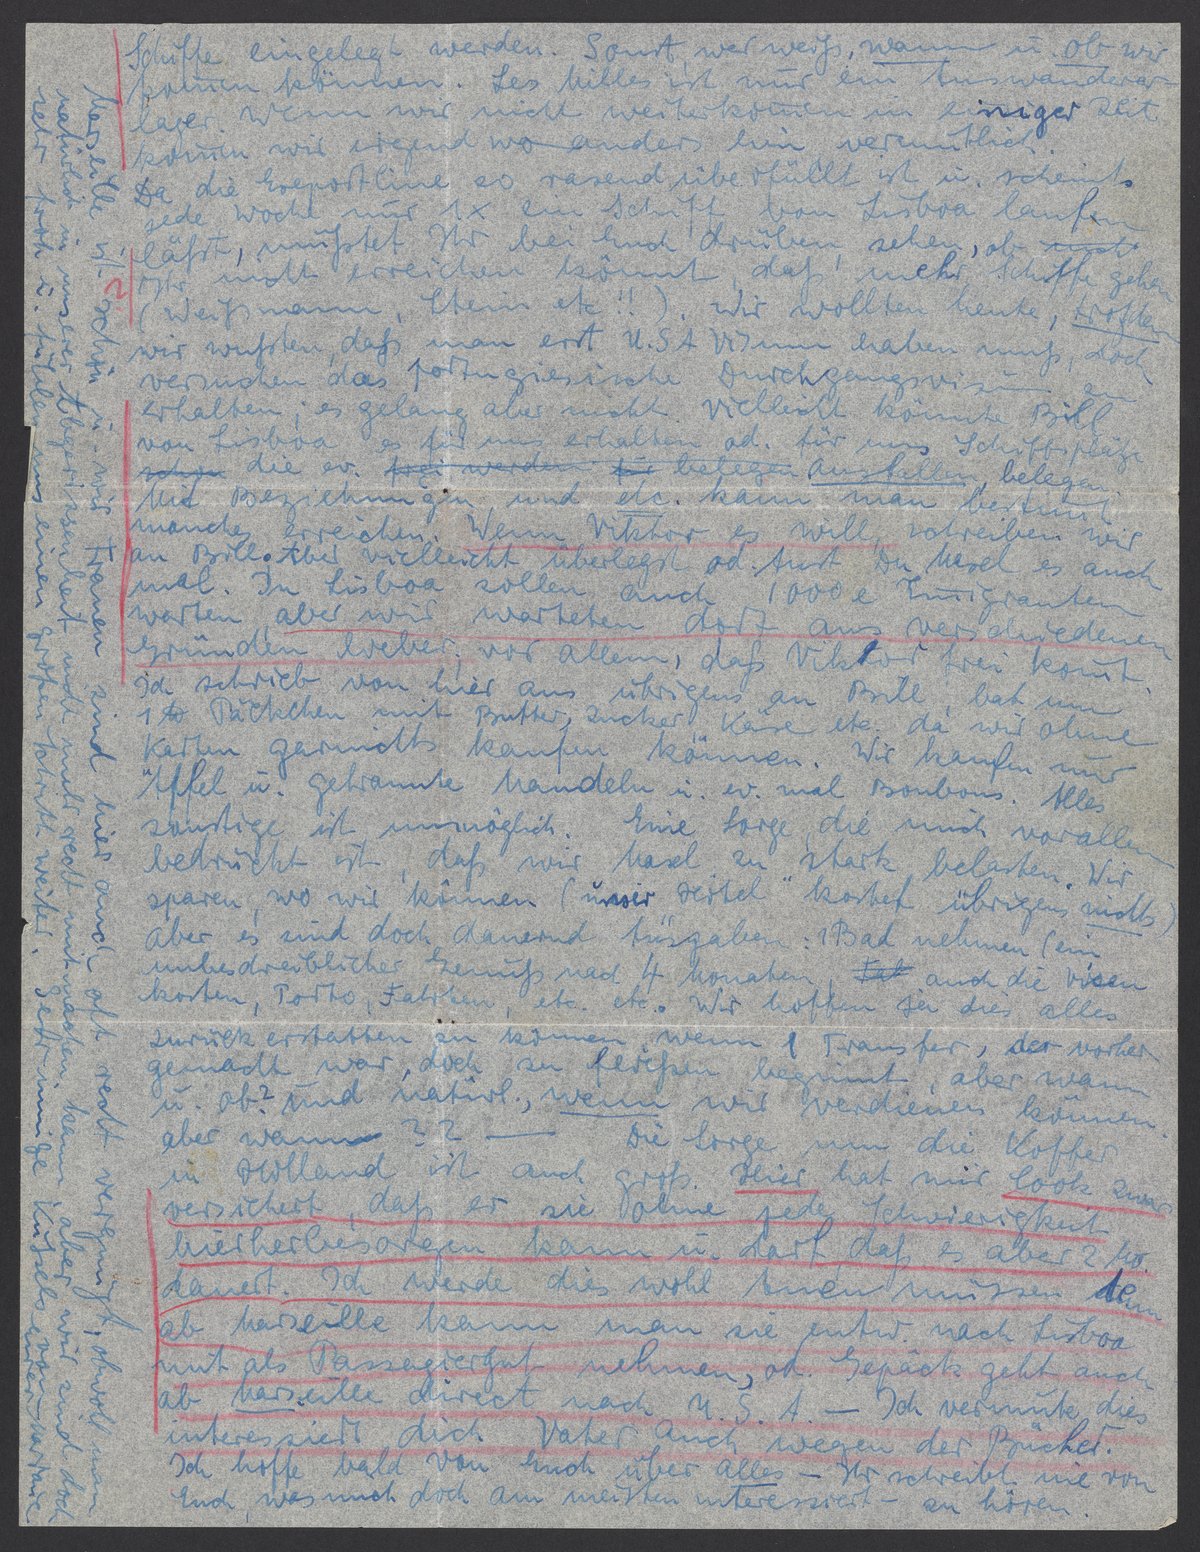 Schiffe eingelegt werden. Sonst, wer weiß, wann u. ob wir
komen können. Les Milles ist nur ein Auswanderer-
lager. Wenn wir nicht weiterkomen in einiger Zeit
komen wir irgend wo anders hin vermutlich.
Da die Exportline so rasend überfüllt ist u. scheints
jede Woche nur 1x ein Schiff von Lisboa laufen
läßt, müßtet Ihr bei Euch drüben sehen, ob
Ihr nicht erreichen könnt, daß mehr Schiffe gehen
(Weißmann, Stein etc!!). Wir wollten heute, trotzdem
wir wußten, daß man erst U.S.A Visum haben muß, doch
versuchen das portugiesische Durchgangsvisum zu
erhalten; es gelang aber nicht. Vielleicht könnte Bill
von Lisboa es für uns erhalten od. für uns Schiffsplätze
schon die ev. frei werden für belegen anstellen, belegen.
Mit Beziehungen und etc. kann man bestimt
manches erreichen. Wenn Viktor es will, schreiben wir
an Bill. Aber vielleicht überlegst od. tust Du Masel es auch
mal. In Lisboa sollen auch 1000e Emigranten
warten, aber wir warteten dort aus verschiedenen
Gründen lieber, vor allem, daß Viktor frei komt.
Ich schrieb von hier aus übrigens an Bill, bat um
1 to Päckchen mit Butter, Zucker, Käse etc. da wir ohne
Karten garnichts kaufen können. Wir kaufen nur
Äpfel u. gebrannte Mandeln u. ev. mal Bonbons. Alles
sonstige ist unmöglich. Eine Sorge, die mich vor allem
bedrückt ist, daß wir Masel zu stark belasten. Wir
sparen, wo wir können (unser "Hotel" kostet übrigens nichts)
aber es sind doch dauernd Ausgaben: 1 Bad nehmen (ein
unbeschreiblicher Genuß nach 4 Monaten, auch die Visen
kosten, Porto, Fahrten, etc. etc. Wir hoffen ja dies alles
zurück erstatten zu können, wenn 1 Transfer, der vorher
gemacht war, doch zu fließen beginnt, aber wann
u. ob? Und natürl., wenn wir verdienen können.
aber wann ?? — Die Sorge um die Koffer
in Holland ist auch groß. Hier hat mir Cook zwar
versichert, daß er sie ohne jede Schwierigkeit
hierherbesorgen kann u. darf, daß es aber 2 Mo.
dauert. Ich werde dies wohl tuen müssen denn
ab Marseille kann man sie entw. nach Lisboa
mit als Passagiergut nehmen, od. Gepäck geht auch
ab Marseille direct nach U.S.A. — Ich vermute, dies
interessiert dich Vater auch wegen der Bücher.
Ich hoffe bald von Euch über alles — Ihr schreibt nie von
Euch, was mich doch am meisten interessiert — zu hören.
Marseille ist schön u. wir Frauen sind hier auch oft recht vergnügt, obwohl man
natürlich in unserer Abgerissenheit nicht recht mitmachen kann, aber wir sind doch
sehr froh u. fühlen uns einen großen Schritt weiter. Sehr innige Küsse
?